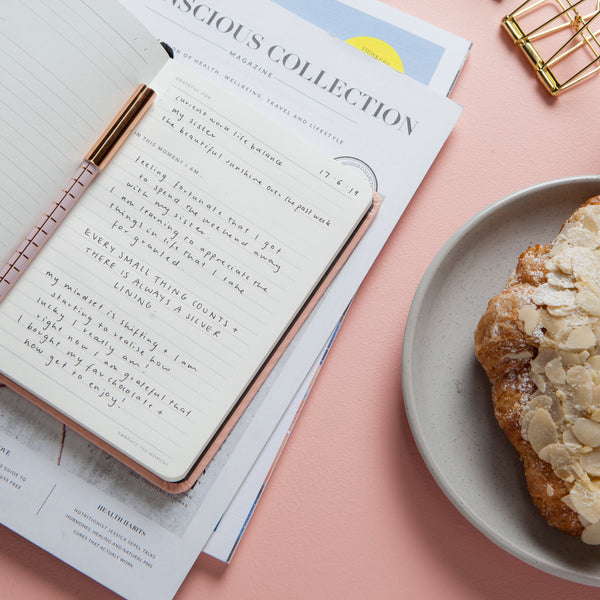 THINKERS
NSCIOUS COLLECTION
MAGAZINE
OF HEALTH, WELLBEING, TRAVEL AND LIFESTYLE
GRATEFUL FOR
17.6.19
current work life balance
my sister
the beautiful sunshine over the past week
IN THIS MOMENT I AM
feeling fortunate that I got
to spend the weekend away
with my sister
I am learning to appreciate the
things in life that I take
for granted
EVERY SMALL THING COUNTS +
THERE IS ALWAYS A SILVER
LINING
my mindset is shifting + I am
starting to realise how
lucky I really am!
right now I am grateful that
I bought my fav chocolate +
now get to enjoy!
EMBRACE THE MOMENT
HEALTH HABITS
NUTRITIONIST JESSICA SEPEL TALKS
HORMONES, HEALING AND NATURAL PMS
CURES THAT ACTUALLY WORK
OVE
S GUIDE TO
USS FREE